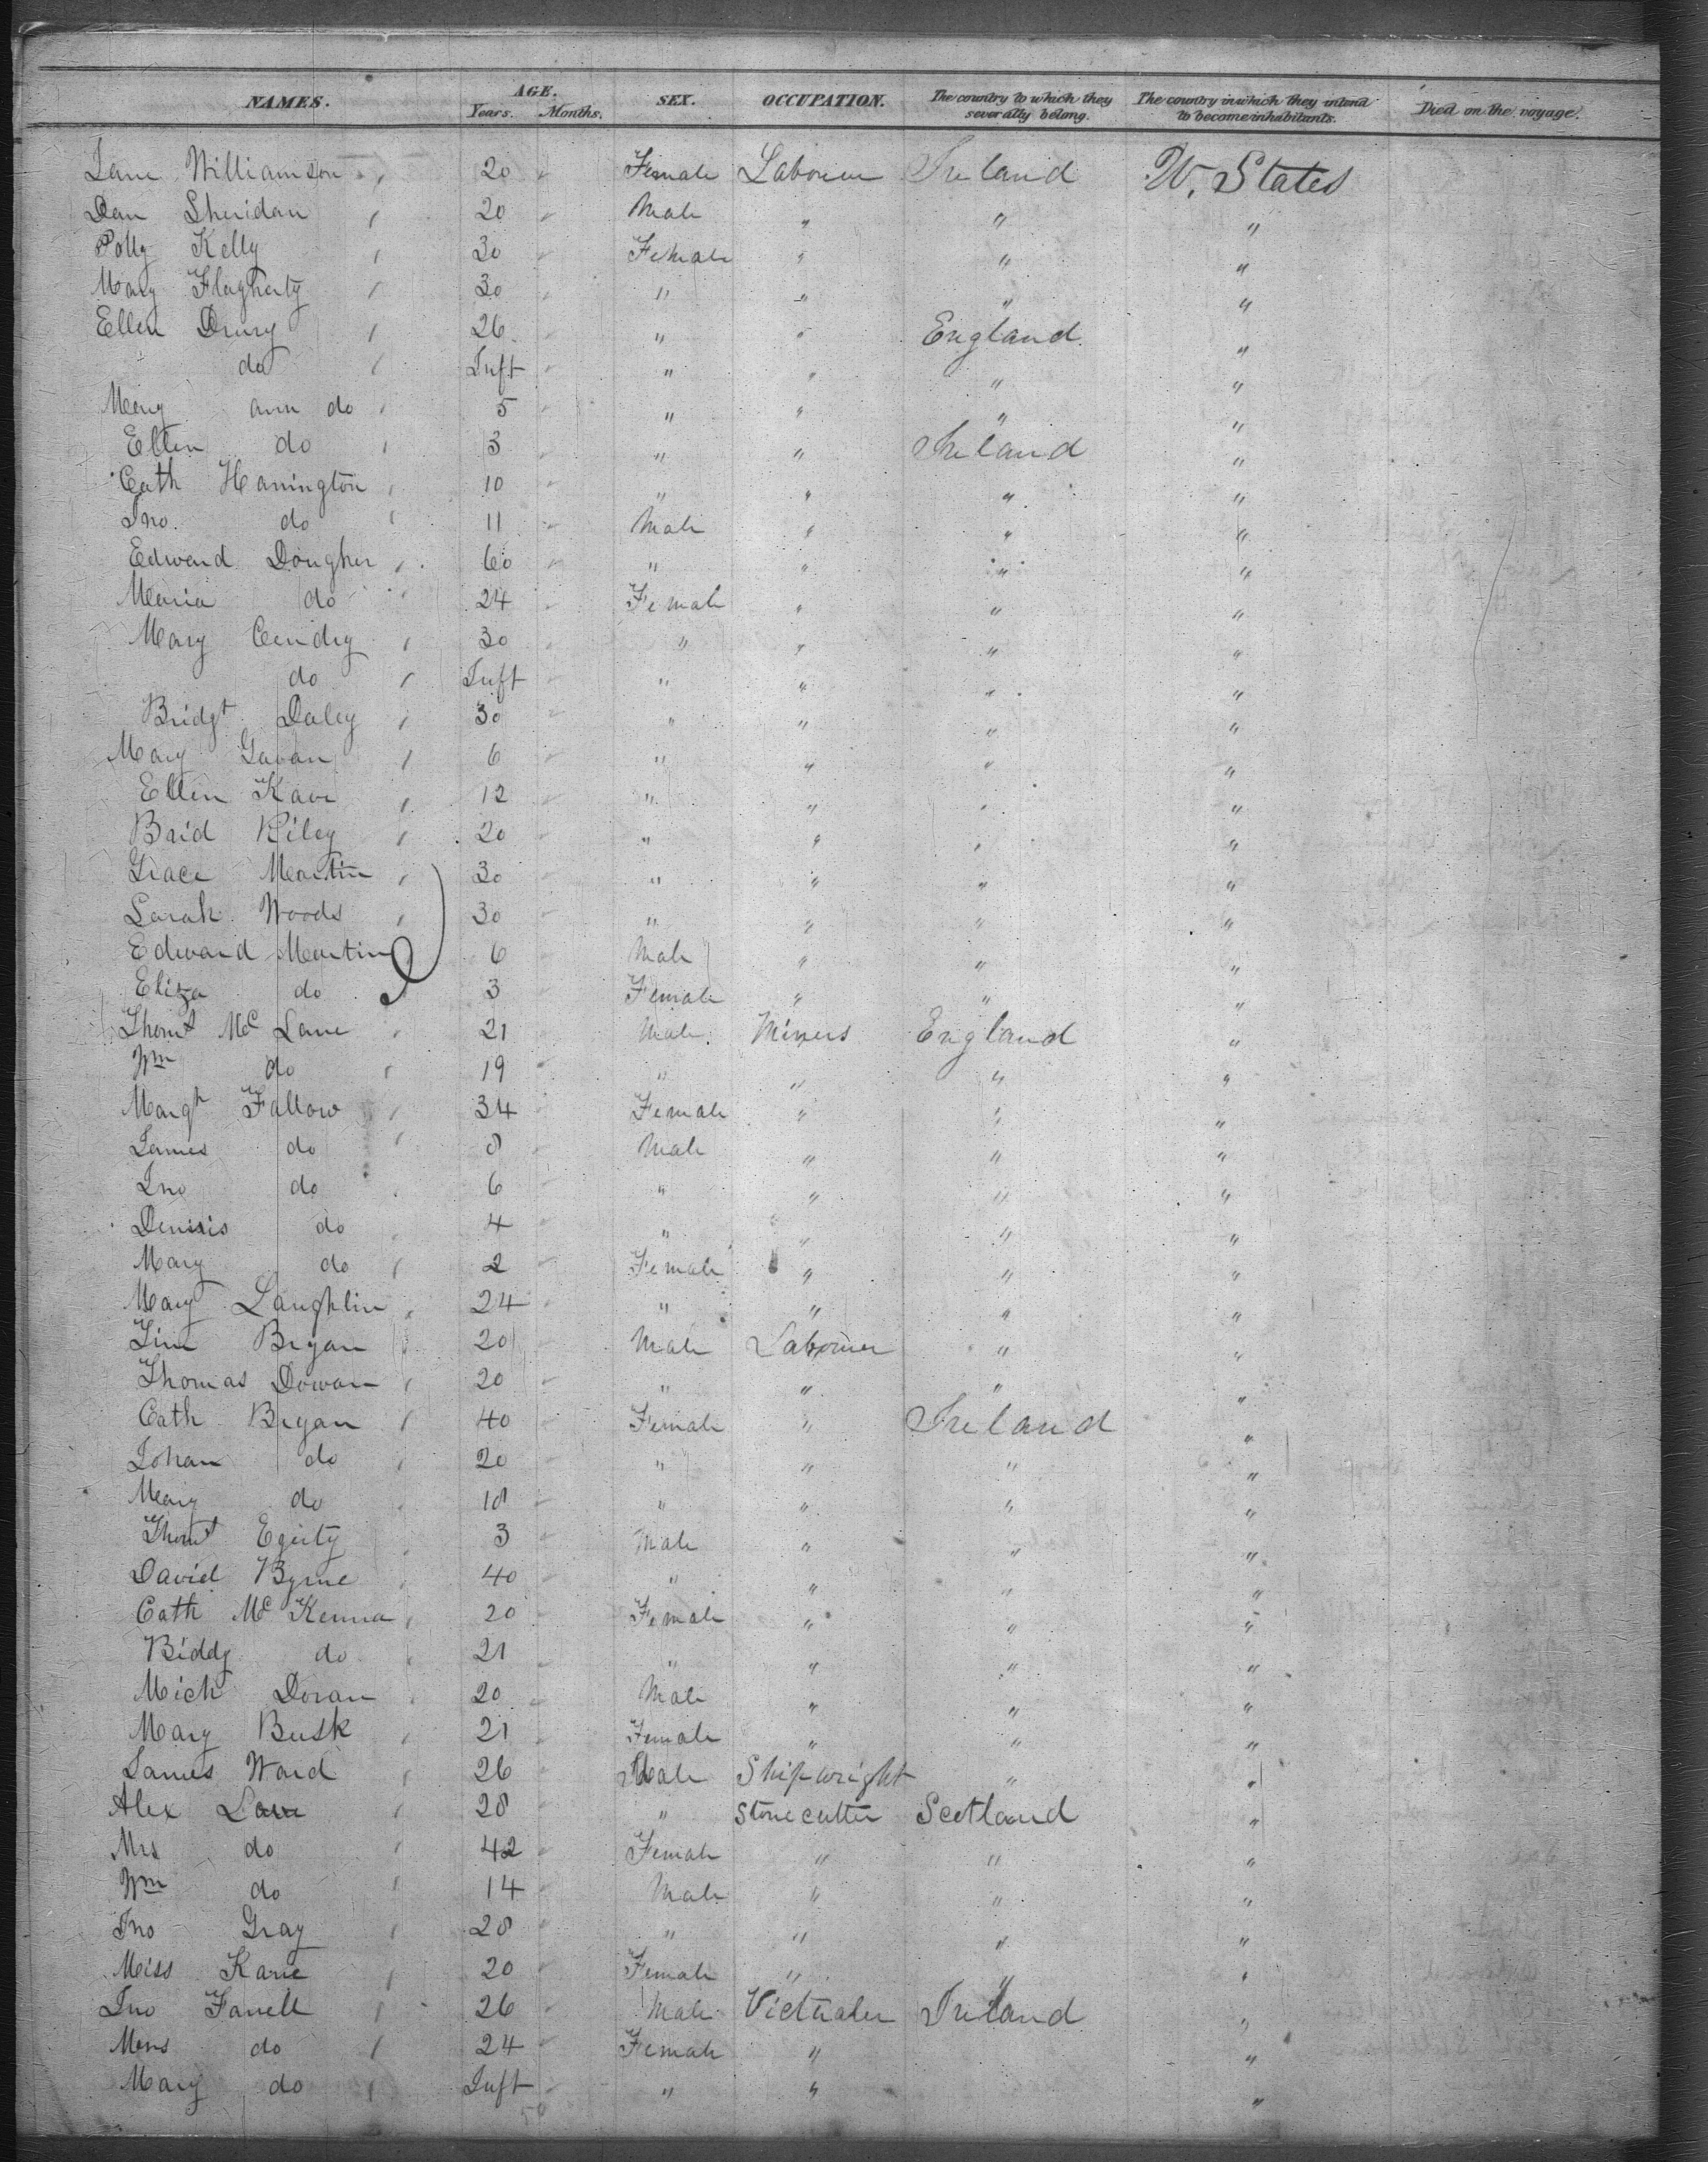 NAMES. AGE. SEX. OCCUPATION. The country to which they severally belong. The country in which they intend to become inhabitants. Died on the voyage.
Years. Months.
Jane Williamson 20 Female Labourer Ireland U. States
Dan Sheridan 20 Male " " "
Polly Kelly 30 Female " " "
Mary Flagherty 30 " " " "
Ellen Drury 26 " " England "
do Inft " " " "
Mary ann do 5 " " " "
Ellen do 3 " " Ireland "
Cath Harrington 10 " " " "
Jno. do 11 Male " " "
Edward Dougher 60 " " " "
Maria do 24 Female " " "
Mary 30 " " " "
do Inft " " " "
Bridgt Daley 30 " " " "
Mary Gavan 6 " " " "
Ellen Kave 12 " " " "
Brid Riley 20 " " " "
Grace Martin 30 " " " "
Sarah Woods 30 " " " "
Edward Martin 6 Male " " "
Eliza do 3 Female " " "
Thoms Mc Lane 21 Male Miners England "
Wm do 19 " " " "
Margt Fallow 34 Female " " "
James do 8 Male " " "
Jno do 6 " " " "
Dennis do 4 " " " "
Mary do 2 Female " " "
Mary Laughlin 24 " " " "
Tim Bryan 20 Male Labourer " "
Thomas Dowan 20 " " " "
Cath Bryan 40 Female " Ireland "
Johan do 20 " " " "
Mary do 18 " " " "
Thoms Egerty 3 Male " " "
David Byrne 40 " " " "
Cath Mc Kenna 20 Female " " "
Biddy do 21 " " " "
Mich Doran 20 Male " " "
Mary Busk 21 Female " " "
James Ward 26 Male Shipwright " "
Alex 28 " Stone cutter Scotland "
Mrs do 42 Female " " "
Wm do 14 Male " " "
Jno Gray 28 " " " "
Miss Kane 20 Female " " "
Jno Farrell 26 Male Victualer Ireland "
Mrs do 24 Female " "
Mary do Inft " " "
50